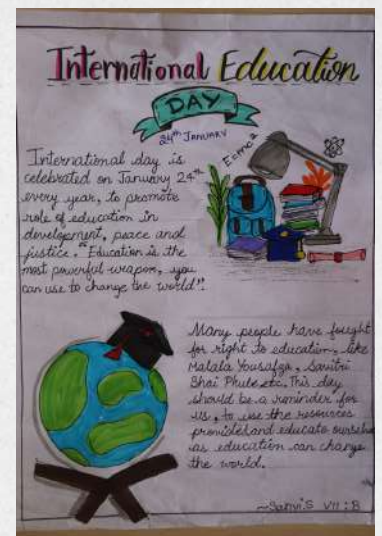 International Education
DAY
24th JANUARY
E=mc2
International day is
celebrated on January 24th
every year, to promote
role of education in
development, peace and
justice. "Education is the
most powerful weapon, you
can use to change the world".
Many people have fought
for right to education, like
Malala Yousafza, Savitri
Bhai Phule etc. This day
should be a reminder for
us, to use the resources
provided and educate ourselve
as education can change
the world.
~Sanvi.S VII:B